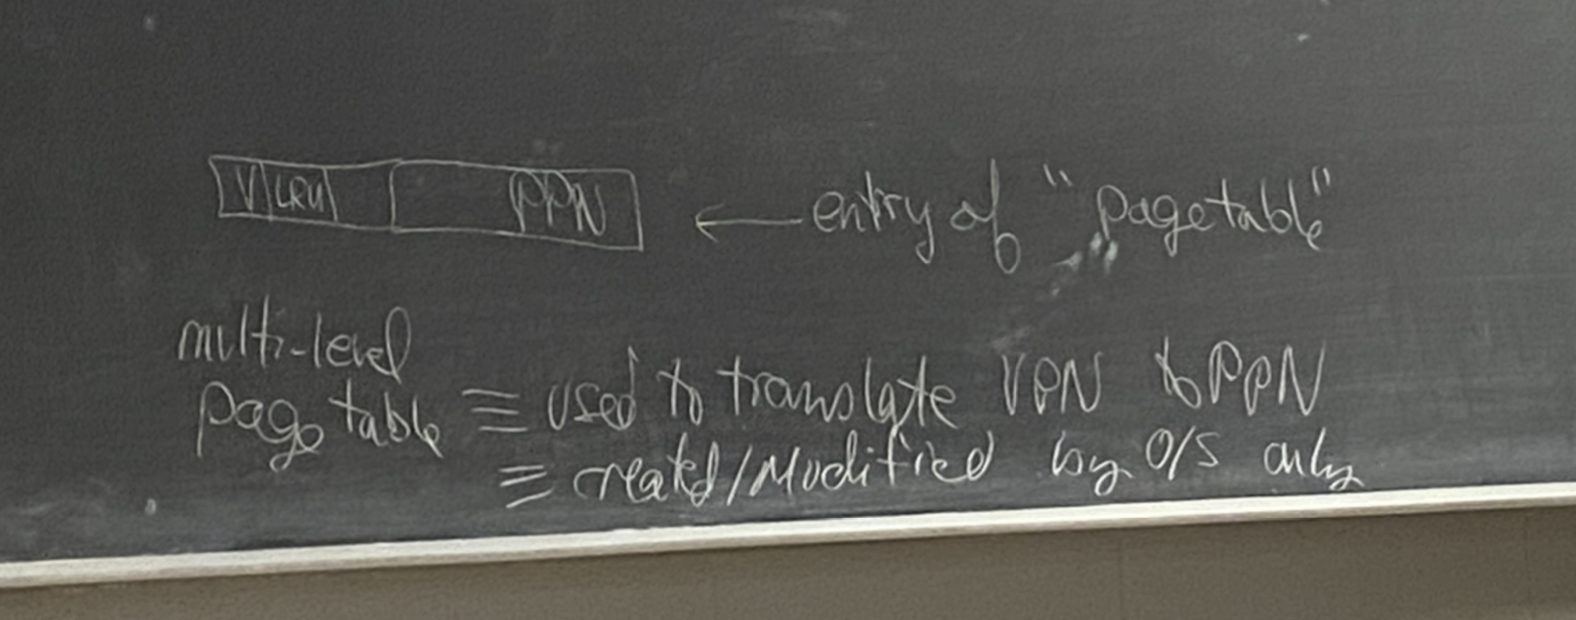 V LRU PPN ← entry of "page table"
multi-level
page table ≡ used to translate VPN to PPN
≡ created/Modified by O/S only